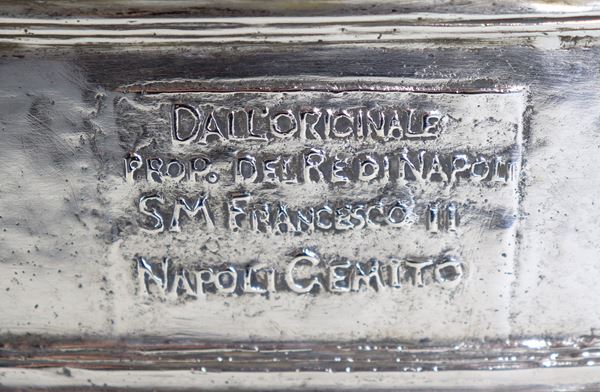 DALL'ORIGINALE
PROP. DEL RE DI NAPOLI
S M FRANCESCO II
NAPOLI GEMITO